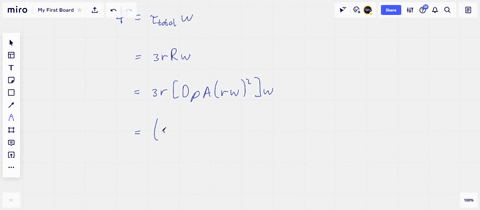 miro My First Board Share
= τ_total w
= 3rRw
= 3r[DρA(rw)²]w
= (
100%